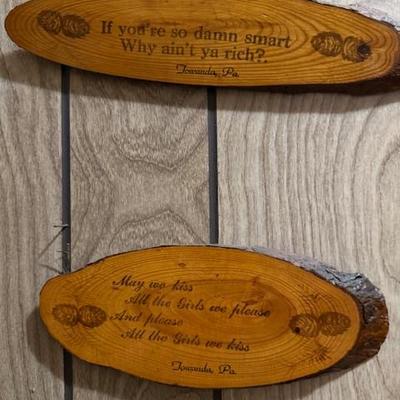 If you're so damn smart
Why ain't ya rich?.
Towanda, Pa.
May we kiss
All the Girls we please
And please
All the Girls we kiss
Towanda, Pa.